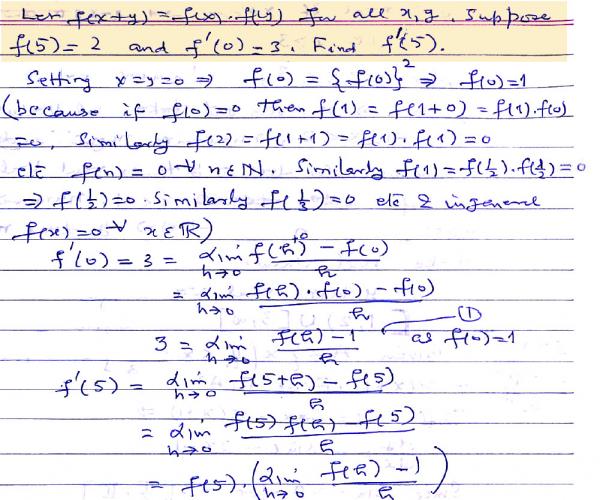 Let f(x+y) = f(x).f(y) for all x,y. Suppose
f(5) = 2 and f'(0) = 3. Find f'(5).
Setting x=y=0 ⇒ f(0) = {f(0)}² ⇒ f(0)=1
(because if f(0)=0 then f(1) = f(1+0) = f(1).f(0)
=0, Similarly f(2) = f(1+1) = f(1).f(1) = 0
etc f(n) = 0 ∀ n∈N. Similarly f(1) = f(½).f(½) = 0
⇒ f(½)=0. Similarly f(⅓)=0 etc & in general
f(x)=0 ∀ x∈R)
f'(0) = 3 = lim h→0 f(h+0) - f(0) / h
= lim h→0 f(h).f(0) - f(0) / h
3 = lim h→0 f(h) - 1 / h as f(0)=1 (1)
f'(5) = lim h→0 f(5+h) - f(5) / h
= lim h→0 f(5) f(h) - f(5) / h
= f(5).(lim h→0 f(h) - 1 / h)